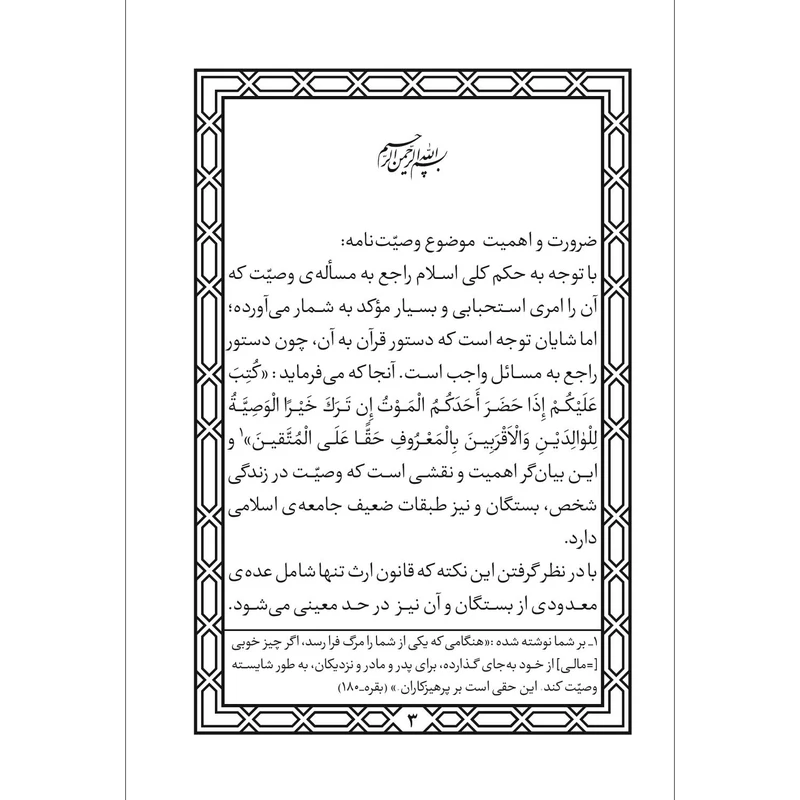 بسم الله الرحمن الرحیم
ضرورت و اهمیت موضوع وصیّت‌نامه:
با توجه به حکم کلی اسلام راجع به مسأله‌ی وصیّت که
آن را امری استحبابی و بسیار مؤکد به شمار می‌آورده؛
اما شایان توجه است که دستور قرآن به آن، چون دستور
راجع به مسائل واجب است. آنجا که می‌فرماید: «كُتِبَ
عَلَيْكُمْ إِذَا حَضَرَ أَحَدَكُمُ الْمَوْتُ إِن تَرَكَ خَيْرًا الْوَصِيَّةُ
لِلْوَٰالِدَيْنِ وَالْأَقْرَبِينَ بِالْمَعْرُوفِ حَقًّا عَلَى الْمُتَّقينَ»۱ و
این بیان‌گر اهمیت و نقشی است که وصیّت در زندگی
شخص، بستگان و نیز طبقات ضعیف جامعه‌ی اسلامی
دارد.
با در نظر گرفتن این نکته که قانون ارث تنها شامل عده‌ی
معدودی از بستگان و آن نیز در حد معینی می‌شود.
۱ـ بر شما نوشته شده :«هنگامی که یکی از شما را مرگ فرا رسد، اگر چیز خوبی
[=مالی] از خود به‌جای گذارده، برای پدر و مادر و نزدیکان، به طور شایسته
وصیّت کند. این حقی است بر پرهیزکاران.» (بقره-۱۸۰)
۳